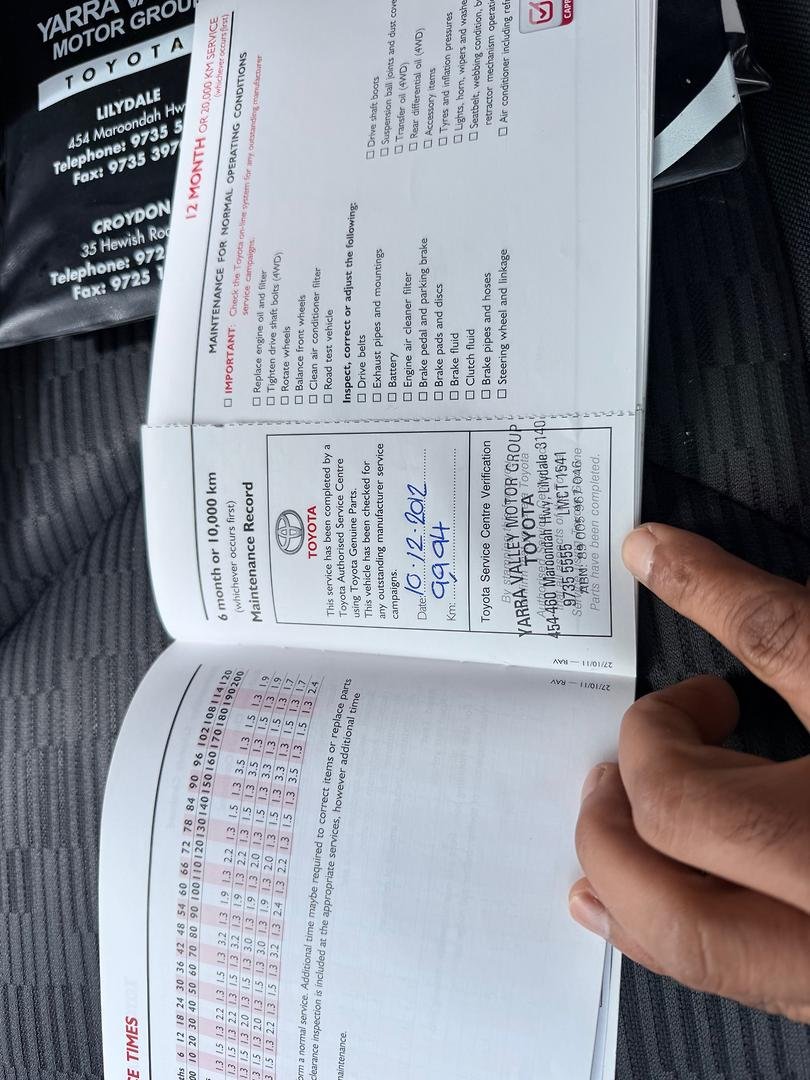 YARRA VA
MOTOR GROU
TOYOTA
LILYDALE
454 Maroondah Hw
Telephone: 9735 5
Fax: 9735 397
CROYDON
35 Hewish Roa
Telephone: 972
Fax: 9725 1
12 MONTH OR 20,000 KM SERVICE
(whichever occurs first)
MAINTENANCE FOR NORMAL OPERATING CONDITIONS
☐ IMPORTANT: Check the Toyota on-line system for any outstanding manufacturer
service campaigns.
☐ Replace engine oil and filter
☐ Tighten drive shaft bolts (4WD)
☐ Rotate wheels
☐ Balance front wheels
☐ Clean air conditioner filter
☐ Road test vehicle
Inspect, correct or adjust the following:
☐ Drive belts
☐ Exhaust pipes and mountings
☐ Battery
☐ Engine air cleaner filter
☐ Brake pedal and parking brake
☐ Brake pads and discs
☐ Brake fluid
☐ Clutch fluid
☐ Brake pipes and hoses
☐ Steering wheel and linkage
☐ Drive shaft boots
☐ Suspension ball joints and dust cove
☐ Transfer oil (4WD)
☐ Rear differential oil (4WD)
☐ Accessory items
☐ Tyres and inflation pressures
☐ Lights, horn, wipers and washe
☐ Seatbelt, webbing condition, b
retractor mechanism operati
☐ Air conditioner including ref
CAPP
6 month or 10,000 km
(whichever occurs first)
Maintenance Record
TOYOTA
This service has been completed by a
Toyota Authorised Service Centre
using Toyota Genuine Parts.
This vehicle has been checked for
any outstanding manufacturer service
campaigns.
Date: 10.12.2012
Km: 9994
Toyota Service Centre Verification
YARRA VALLEY MOTOR GROUP
TOYOTA
454-460 Maroondah Hwy, Lilydale 3140
9735 5555 LMCT 1541
ABN: 89 005 967 046
Parts have been completed.
27/10/11 — RAV
27/10/11 — RAV
CE TIMES
ths 6 12 18 24 30 36 42 48 54 60 66 72 78 84 90 96 102 108 114 120
00 10 20 30 40 50 60 70 80 90 100 110 120 130 140 150 160 170 180 190 200
1.3 1.5 1.3 2.2 1.3 1.5 1.3 3.2 1.3 1.9 1.3 2.2 1.3 1.5 1.3 3.5 1.3 1.5 1.3 1.9
orm a normal service. Additional time maybe required to correct items or replace parts
clearance inspection is included at the appropriate services, however additional time
maintenance.